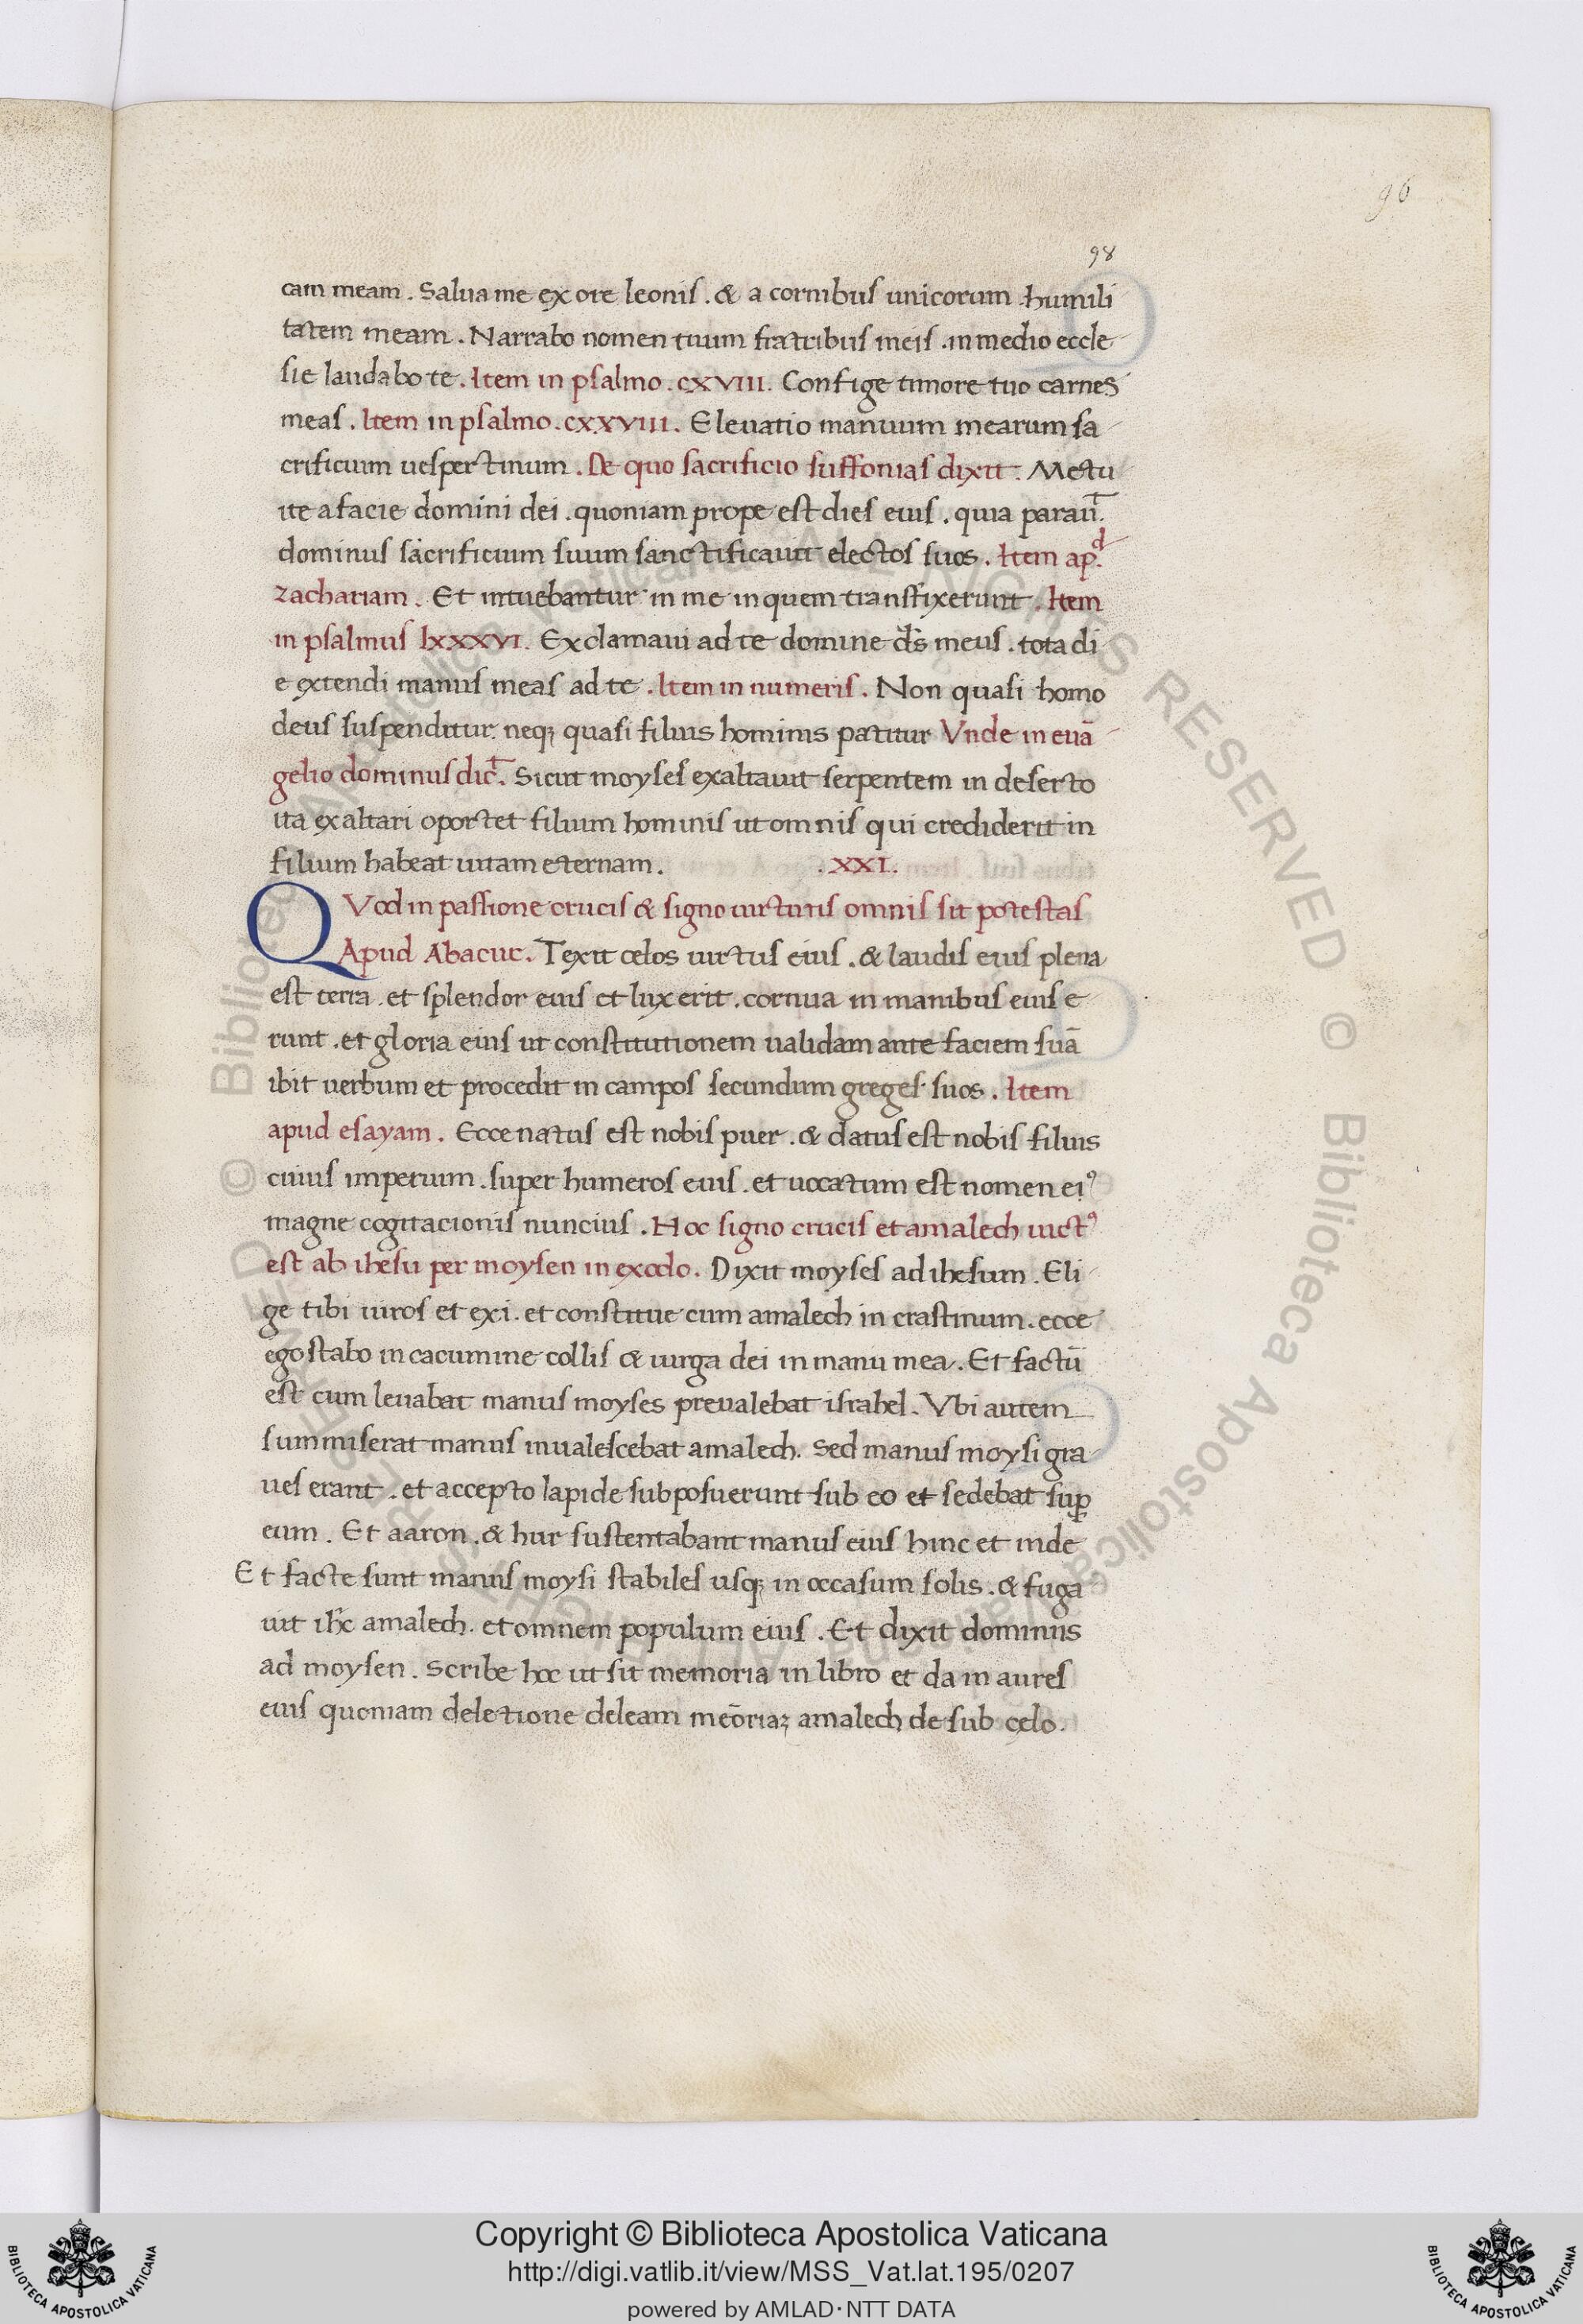 96
98
cam meam . Salua me ex ore leonis . & a cornibus unicorum . humili
tatem meam . Narrabo nomen tuum fratribus meis . in medio eccle
sie laudabo te . Item in psalmo . CXVIII. Confige timore tuo carnes
meas . Item in psalmo . CXXXVIII. Eleuatio manuum mearum sa
crificium uespertinum . De quo sacrificio suffonias dixit . Metu
ite a facie domini dei . quoniam prope est dies eius . quia parauit̅.
dominus sacrificium suum sanctificauit electos suos . Item apᵈ.
zachariam . Et intuebantur in me in quem transfixerunt . Item
in psalmus lxxxvi. Exclamaui ad te domine ds̄ meus . tota di
e extendi manus meas ad te . Item in numeris . Non quasi homo
deus suspenditur. neq; quasi filius hominis patitur Vnde in euā
gelio dominus dic̄t. Sicut moyses exaltauit serpentem in deserto
ita exaltari oportet filium hominis ut omnis qui crediderit in
filium habeat uitam eternam . .XXI.
QVod in passione crucis & signo uirtutis omnis sit potestas
Apud Abacuc . Texit celos uirtus eius . & laudis eius plena
est terra . et splendor eius et lux erit . cornua in manibus eius e
runt . et gloria eius ut constitutionem ualidam ante faciem suā
ibit uerbum et procedit in campos secundum greges suos . Item
apud esayam . Ecce natus est nobis puer . & datus est nobis filius
cuius imperium . super humeros eius . et uocatum est nomen eiꝰ
magne cogitacionis nuncius . Hoc signo crucis et amalech uictꝰ
est ab ihesu per moysen in exodo . Dixit moyses ad ihesum . Eli
ge tibi uiros et exi . et constitue cum amalech in crastinum . ecce
ego stabo in cacumine collis & uirga dei in manu mea . Et factū
est cum leuabat manus moyses preualebat israhel . Vbi autem
summiserat manus inualescebat amalech. Sed manus moysi gra
ues erant . et accepto lapide subposuerunt sub eo et sedebat suꝑ
eum . Et aaron . & hur sustentabant manus eius hinc et inde
Et facte sunt manus moysi stabiles usq; in occasum solis . & fuga
uit ihc̄ amalech . et omnem populum eius . Et dixit dominus
ad moysen . Scribe hoc ut sit memoria in libro et da in aures
eius quoniam deletione deleam meōriaꝫ amalech de sub celo .
Copyright © Biblioteca Apostolica Vaticana
http://digi.vatlib.it/view/MSS_Vat.lat.195/0207
powered by AMLAD·NTT DATA
BIBLIOTECA APOSTOLICA VATICANA
BIBLIOTECA APOSTOLICA VATICANA